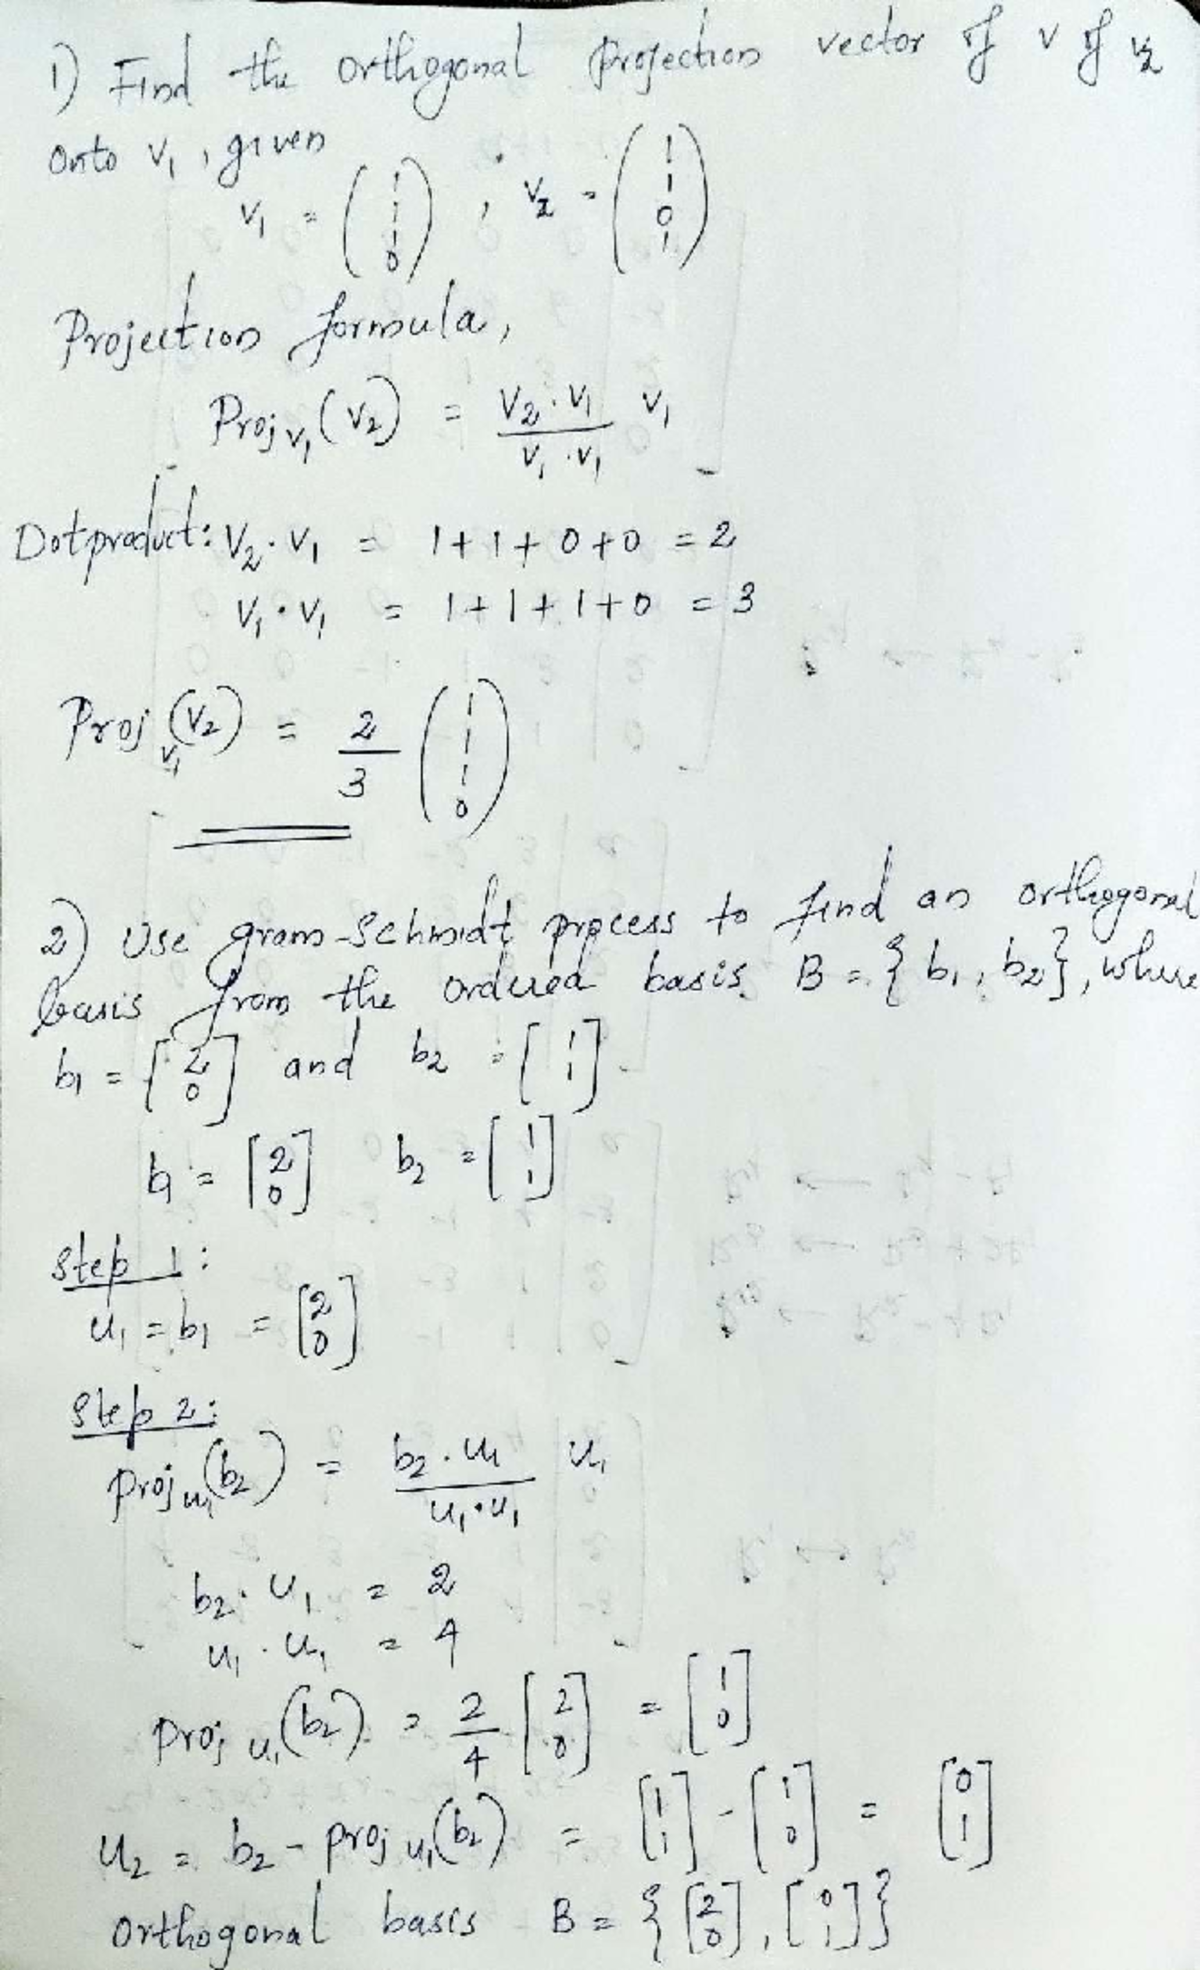 1) Find the orthogonal projection vector of v of v2
onto v1, given
v1 = (1 1 1 0), v2 = (1 1 0 1)
Projection formula,
Proj v1 (v2) = V2 . V1 / V1 . V1 V1
Dot product: V2 . V1 = 1 + 1 + 0 + 0 = 2
V1 . V1 = 1 + 1 + 1 + 0 = 3
Proj v1 (v2) = 2/3 (1 1 1 0)
2) Use gram-Schmidt process to find an orthogonal
basis from the ordered basis B = { b1, b2 }, where
b1 = [2 0] and b2 = [1 1].
b1 = [2 0] b2 = [1 1]
Step 1:
u1 = b1 = [2 0]
Step 2:
Proj u1 (b2) = b2 . u1 / u1 . u1 u1
b2 . u1 = 2
u1 . u1 = 4
Proj u1 (b2) = 2/4 [2 0] = [1 0]
u2 = b2 - proj u1 (b2) = [1 1] - [1 0] = [0 1]
Orthogonal basis B = { [2 0], [0 1] }